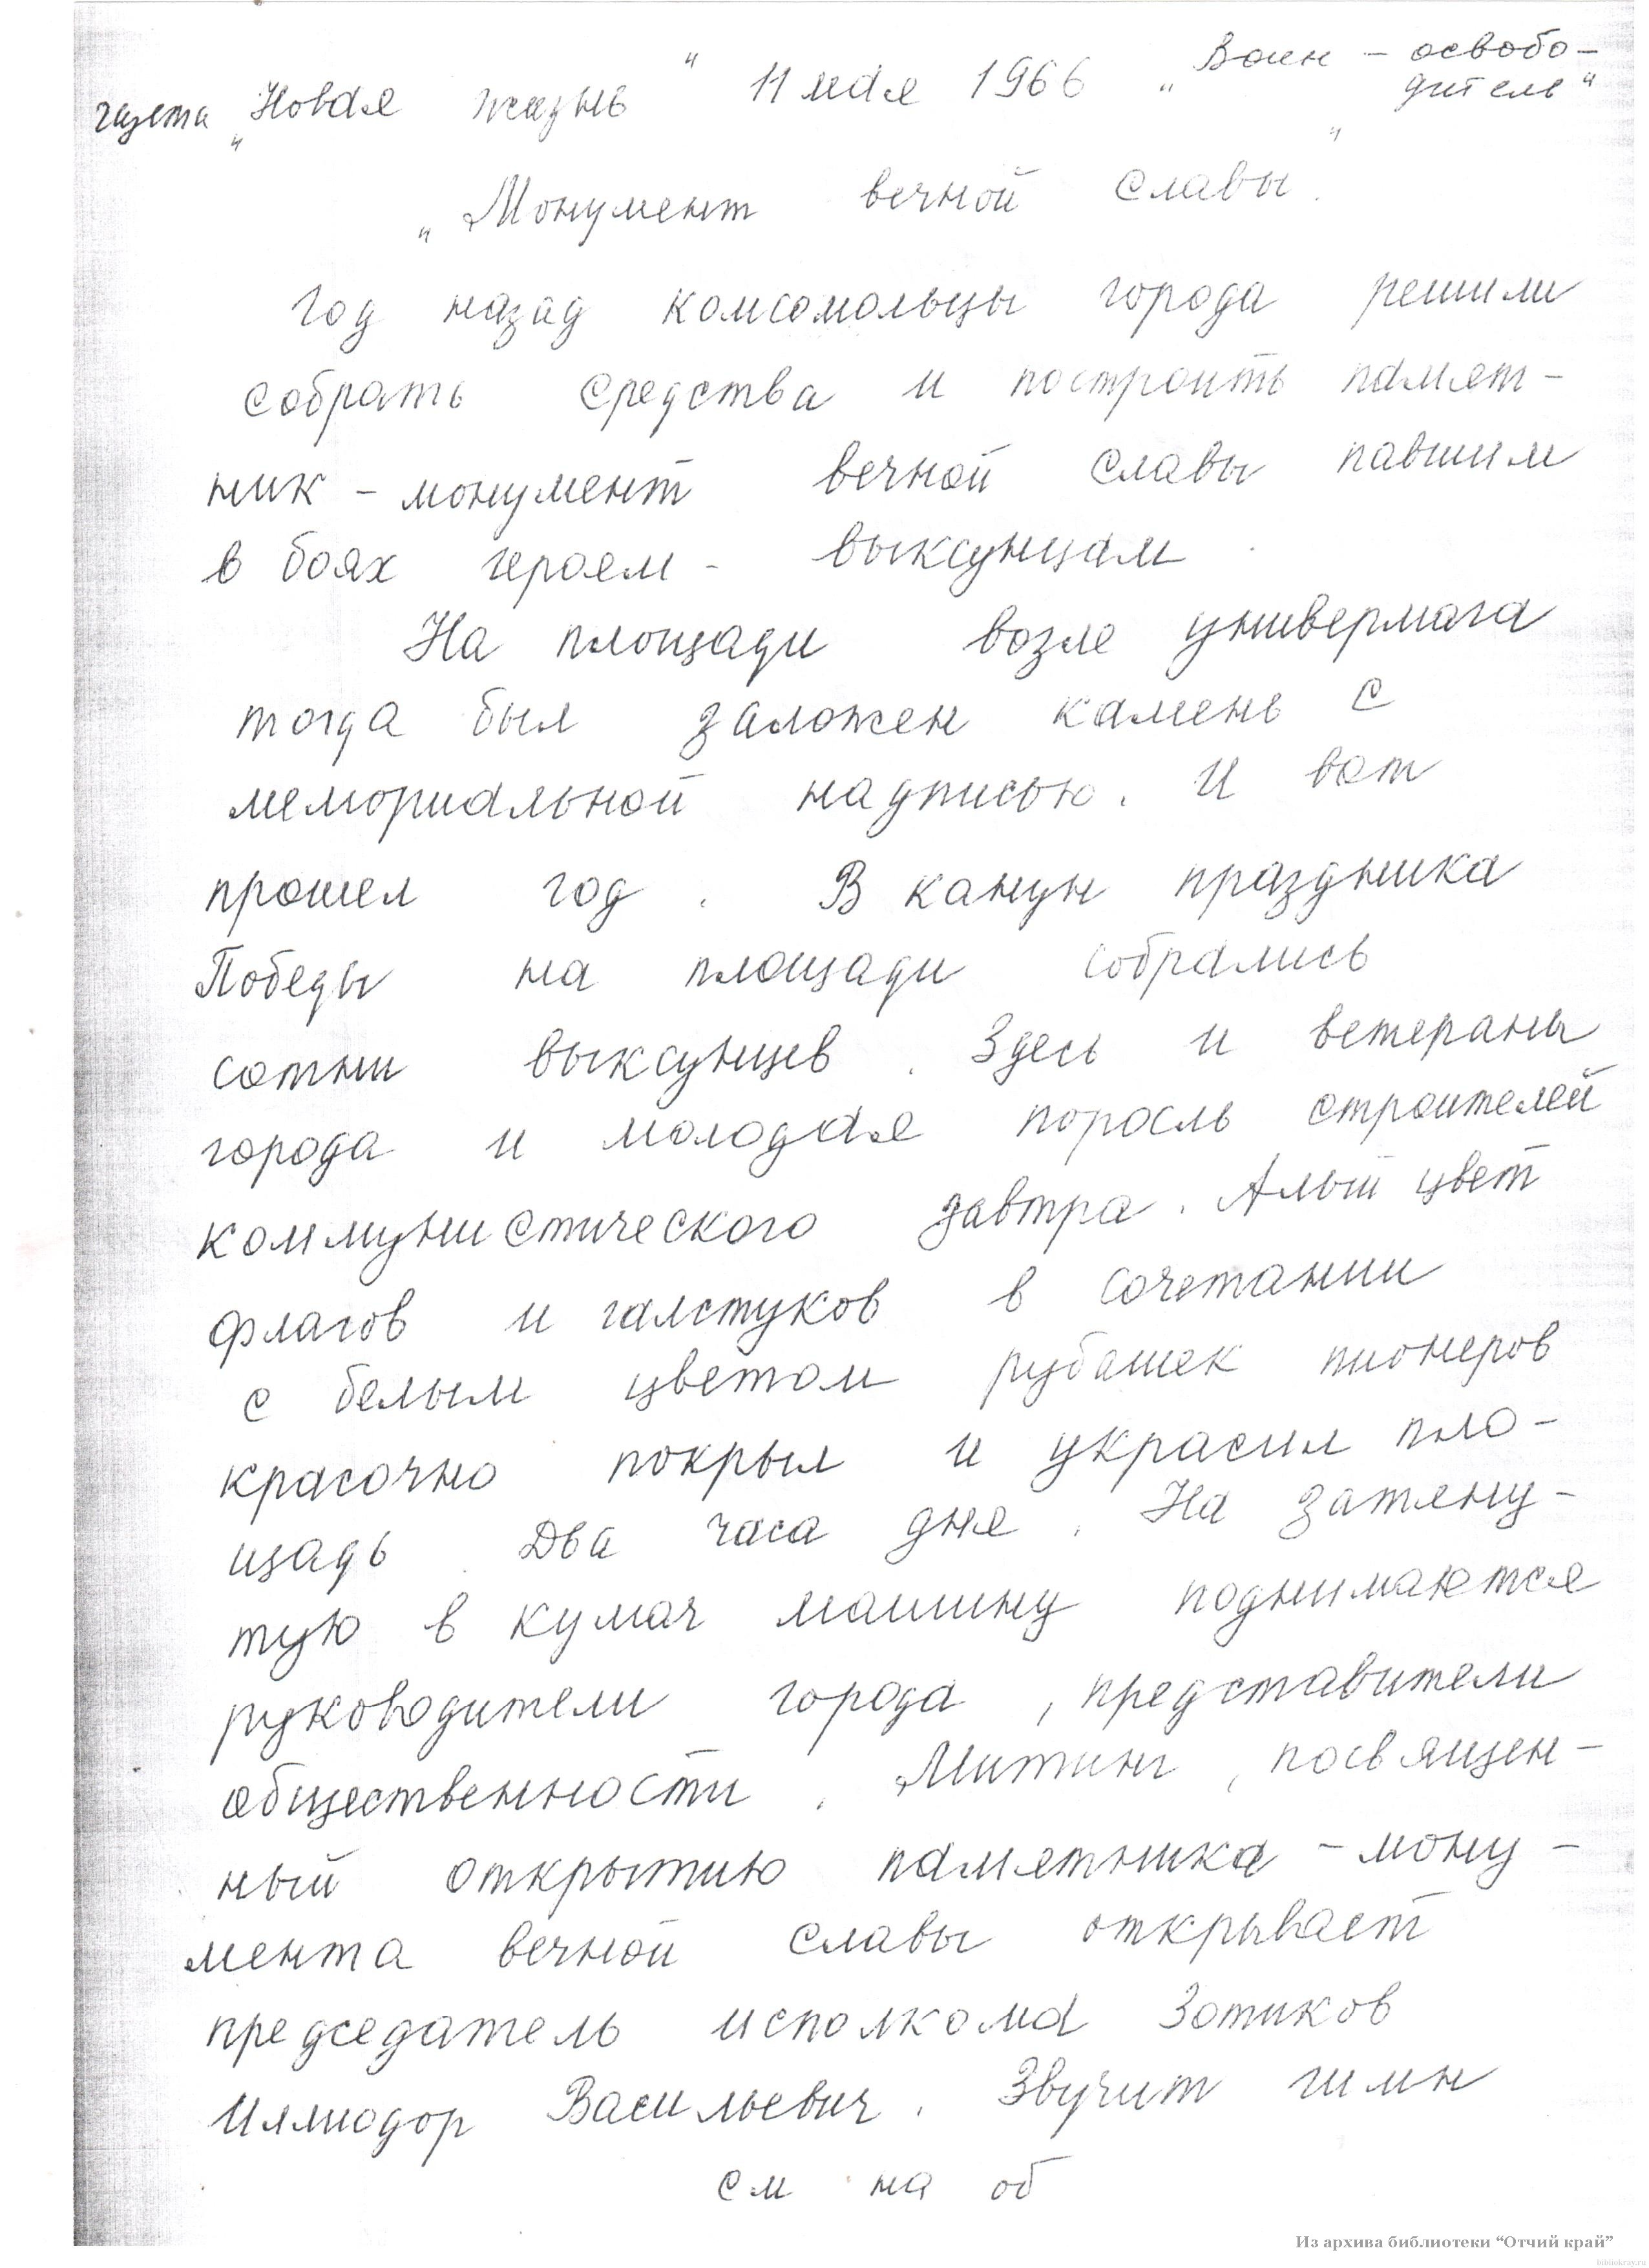 газета „Новая жизнь" 11 мая 1966 „Воин - освобо-
дитель"
„Монумент вечной славы".
Год назад комсомольцы города решили
собрать средства и построить памят-
ник - монумент вечной славы павшим
в боях героям - выксунцам.
На площади возле универмага
тогда был заложен камень с
мемориальной надписью. И вот
прошел год. В канун праздника
Победы на площади собрались
сотни выксунцев. Здесь и ветераны
города и молодая поросль строителей
коммунистического завтра. Алый цвет
флагов и галстуков в сочетании
с белым цветом рубашек пионеров
красочно покрыл и украсил пло-
щадь. Два часа дня. На затяну-
тую в кумач машину поднимаются
руководители города, представители
общественности. Митинг, посвящен-
ный открытию памятника - мону-
мента вечной славы открывает
председатель исполкома Зотиков
Иллиодор Васильевич. Звучит гимн
см на об
Из архива библиотеки “Отчий край”